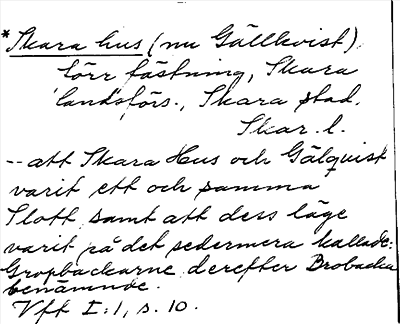 *Skara hus (nu Gällkvist)
törr fästning, Skara
landsförs., Skara stad.
Skar. l.
-- att Skara Hus och Gälquist
varit ett och samma
Slott samt att dess läge
varit på det sedermera kallade:
Gropbackarne derefter Brobacka
benämnde.
Vft I:1, s. 10.